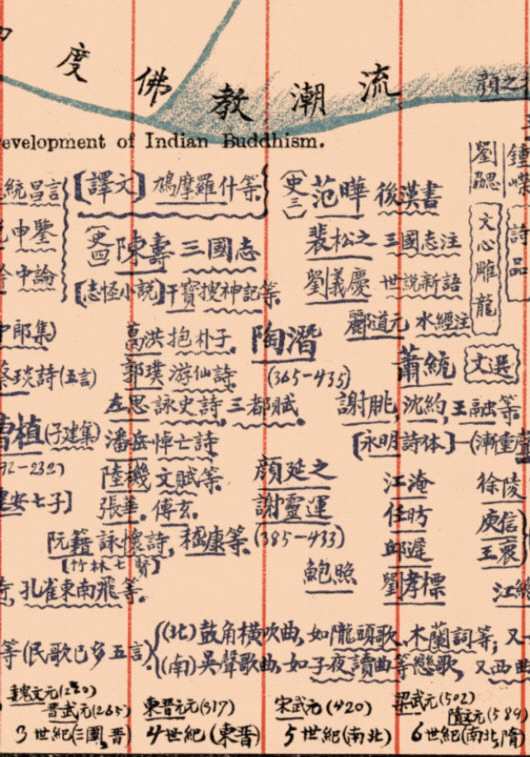 度佛教潮流
evelopment of Indian Buddhism.
顏之
劉勰
文心雕龍
鍾嶸
詩品
統昌言
申鑒
中論
【譯文】鳩摩羅什等
(史四)陳壽 三國志
[志怪小說]干寶搜神記等
(史三)范曄 後漢書
裴松之 三國志注
劉義慶 世說新語
酈道元 水經注
中郎集)
蔡琰詩(五言)
曹植(子建集)
92-232)
建安七子]
葛洪 抱朴子.
郭璞 游仙詩.
左思 詠史詩,三都賦.
潘岳 悼亡詩
陸機 文賦等.
張華. 傅玄.
阮籍 詠懷詩, 嵇康等.
[竹林七賢]
孔雀東南飛等.
陶潛
(365-435)
顏延之
謝靈運
(385-433)
鮑照
蕭統 文選
謝朓 沈約,王融等
[永明詩体]—(漸重
江淹
任昉
邱遲
劉孝標
徐陵
庾信
王褒
江總
等(民歌已多五言)
(北)鼓角橫吹曲,如隴頭歌、木蘭詞等; 又
(南)吳聲歌曲,如子夜讀曲等戀歌, 又西曲
魏文元(220)
晋武元(265)
3世紀(三國,晋)
東晋元元(317)
4世紀(東晋)
宋武元(420)
5世紀(南北)
梁武元(502)
隋文元(589)
6世紀(南北,隋)